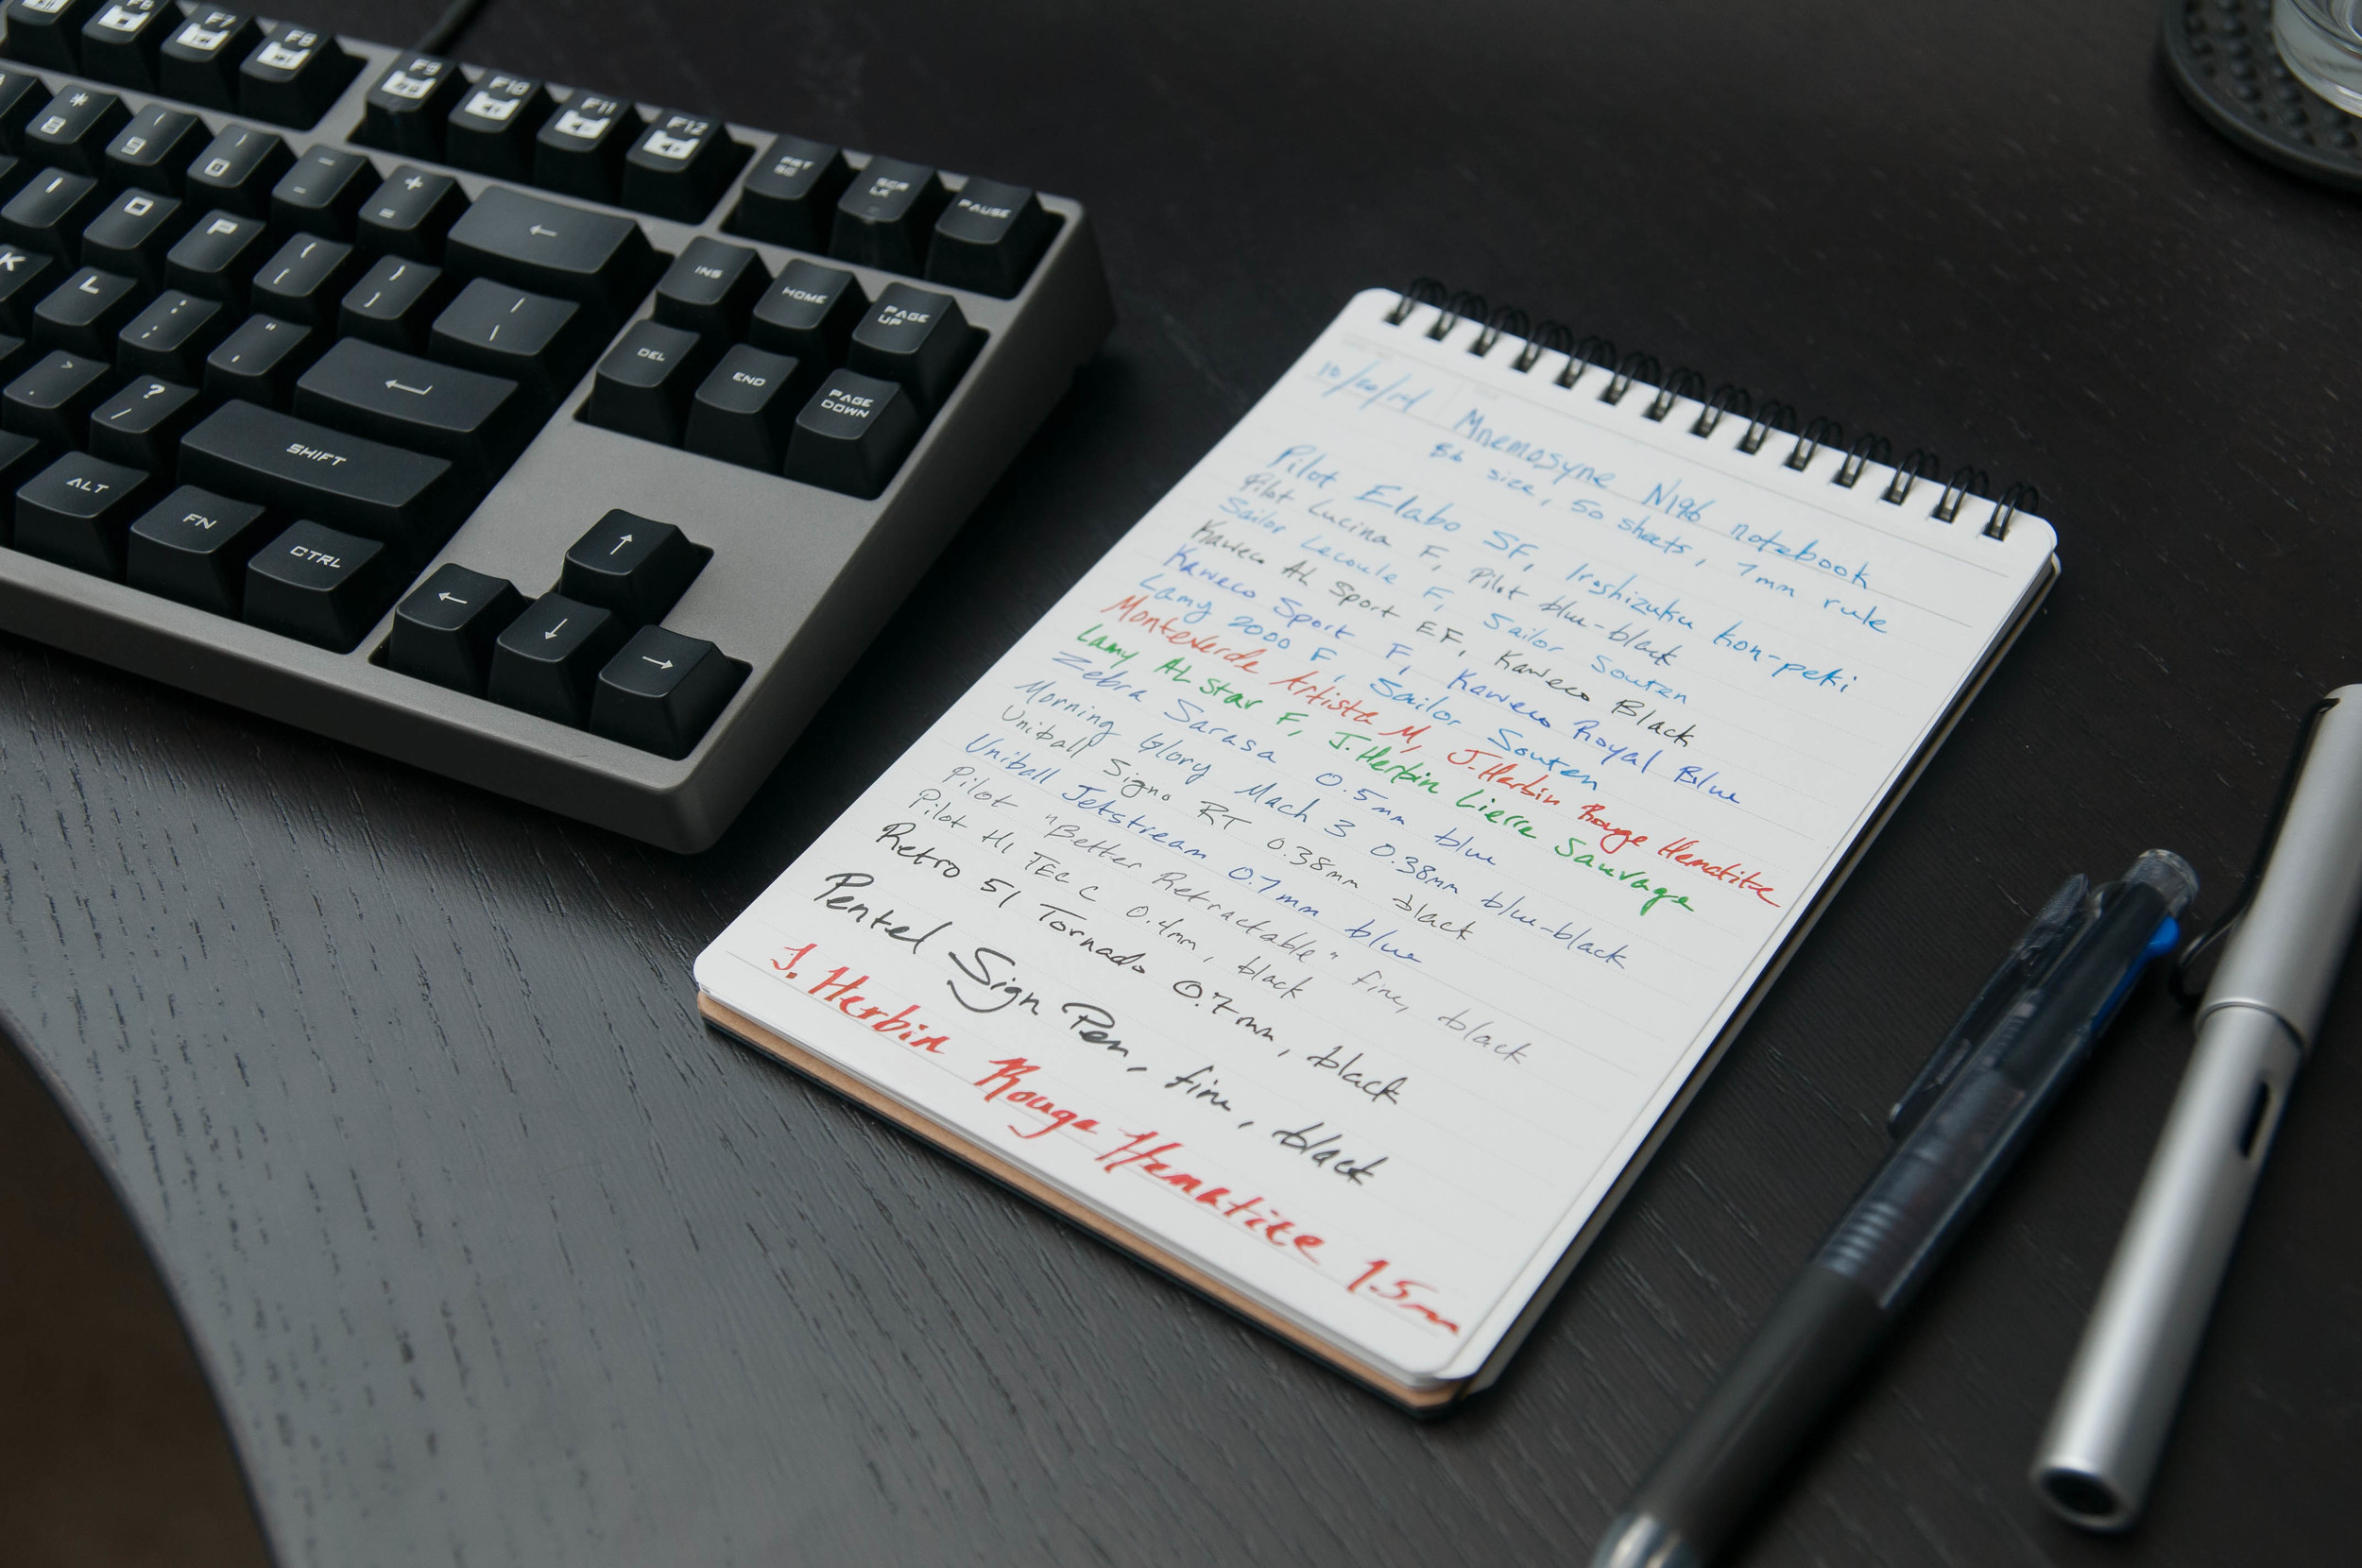 F6 F7 F8 F9 F10 F11 F12 PRT SC SCR LK PAUSE
* 8 ( 9 ) 0 _ - + = ←
INS HOME PAGE UP
I O P { [ } ] | \
DEL END PAGE DOWN
K L : ; " '
> . ? / SHIFT
ALT FN CTRL
↑
← ↓ →
Mnemosyne N196 notebook
B6 size, 50 sheets, 7mm rule
Pilot Elabo SF, Iroshizuku kon-peki
Pilot Lucina F, Pilot blue-black
Sailor Lecoule F, Sailor Souten
Kaweco AL Sport EF, Kaweco Black
Kaweco Sport F, Kaweco Royal Blue
Lamy 2000 F, Sailor Souten
Monteverde Artista M, J. Herbin Rouge Hematite
Lamy AL Star F, J. Herbin Lierre Sauvage
Zebra Sarasa 0.5mm blue
Morning Glory Mach 3 0.38mm blue-black
Uniball Signo RT 0.38mm black
Uniball Jetstream 0.7mm blue
Pilot "Better Retractable" fine, black
Pilot Hi TEC C 0.4mm, black
Retro 51 Tornado 0.7mm, black
Pentel Sign Pen, fine, black
J. Herbin Rouge Hematite 1.5mm